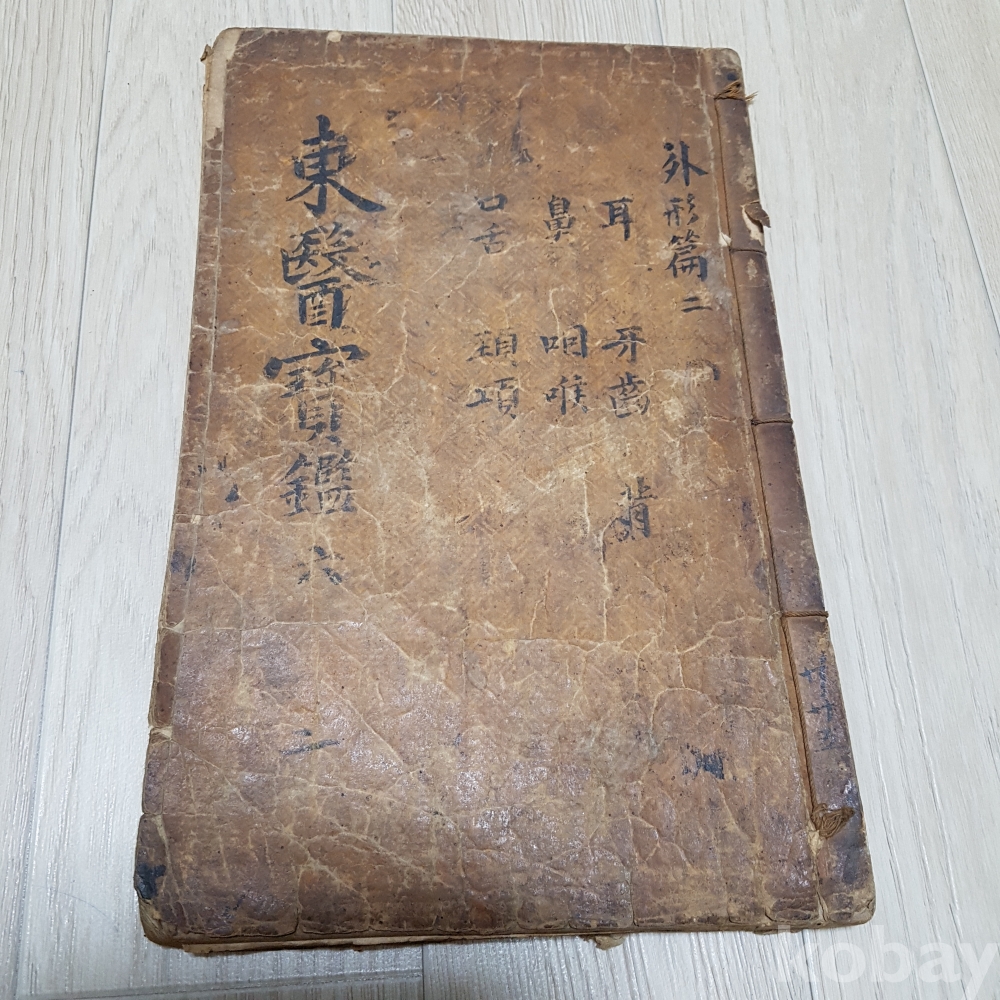 外形篇 二
耳 牙齒 背
鼻 咽喉
口舌 頸項
東醫寶鑑 六
二
共十五
kobay